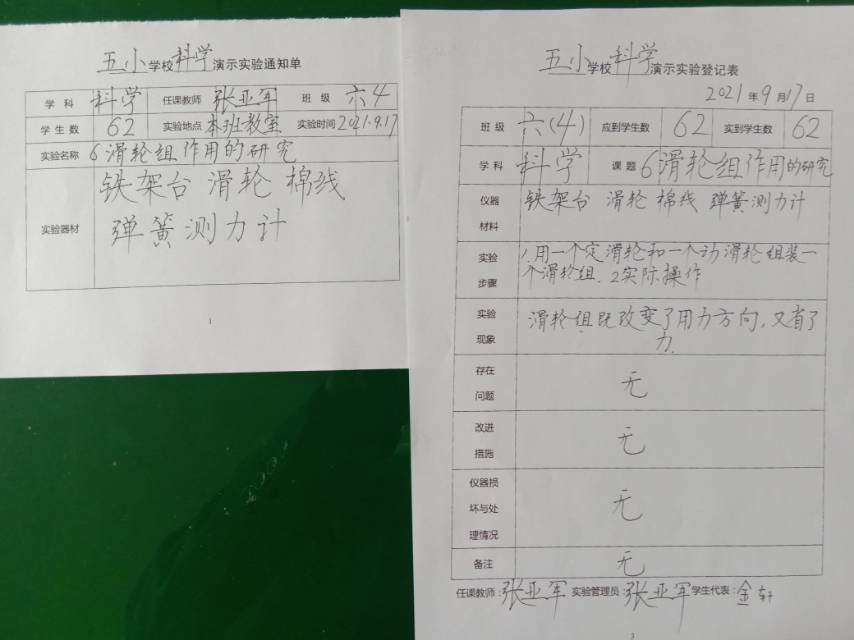 五小学校科学演示实验通知单
学 科 科学 任课教师 张亚军 班 级 六4
学 生 数 62 实验地点 本班教室 实验时间 2021.9.17
实验名称 6滑轮组作用的研究
实验器材 铁架台 滑轮 棉线
弹簧测力计
1
五小学校科学演示实验登记表
2021年9月17日
班 级 六(4) 应到学生数 62 实到学生数 62
学 科 科学 课 题 6滑轮组作用的研究
仪器材料 铁架台 滑轮 棉线 弹簧测力计
实验步骤 1.用一个定滑轮和一个动滑轮组装一
个滑轮组.2实际操作
实验现象 滑轮组既改变了用力方向,又省了
力.
存在问题 无
改进措施 无
仪器损坏与处理情况 无
备注 无
任课教师:张亚军 实验管理员:张亚军 学生代表:金轩